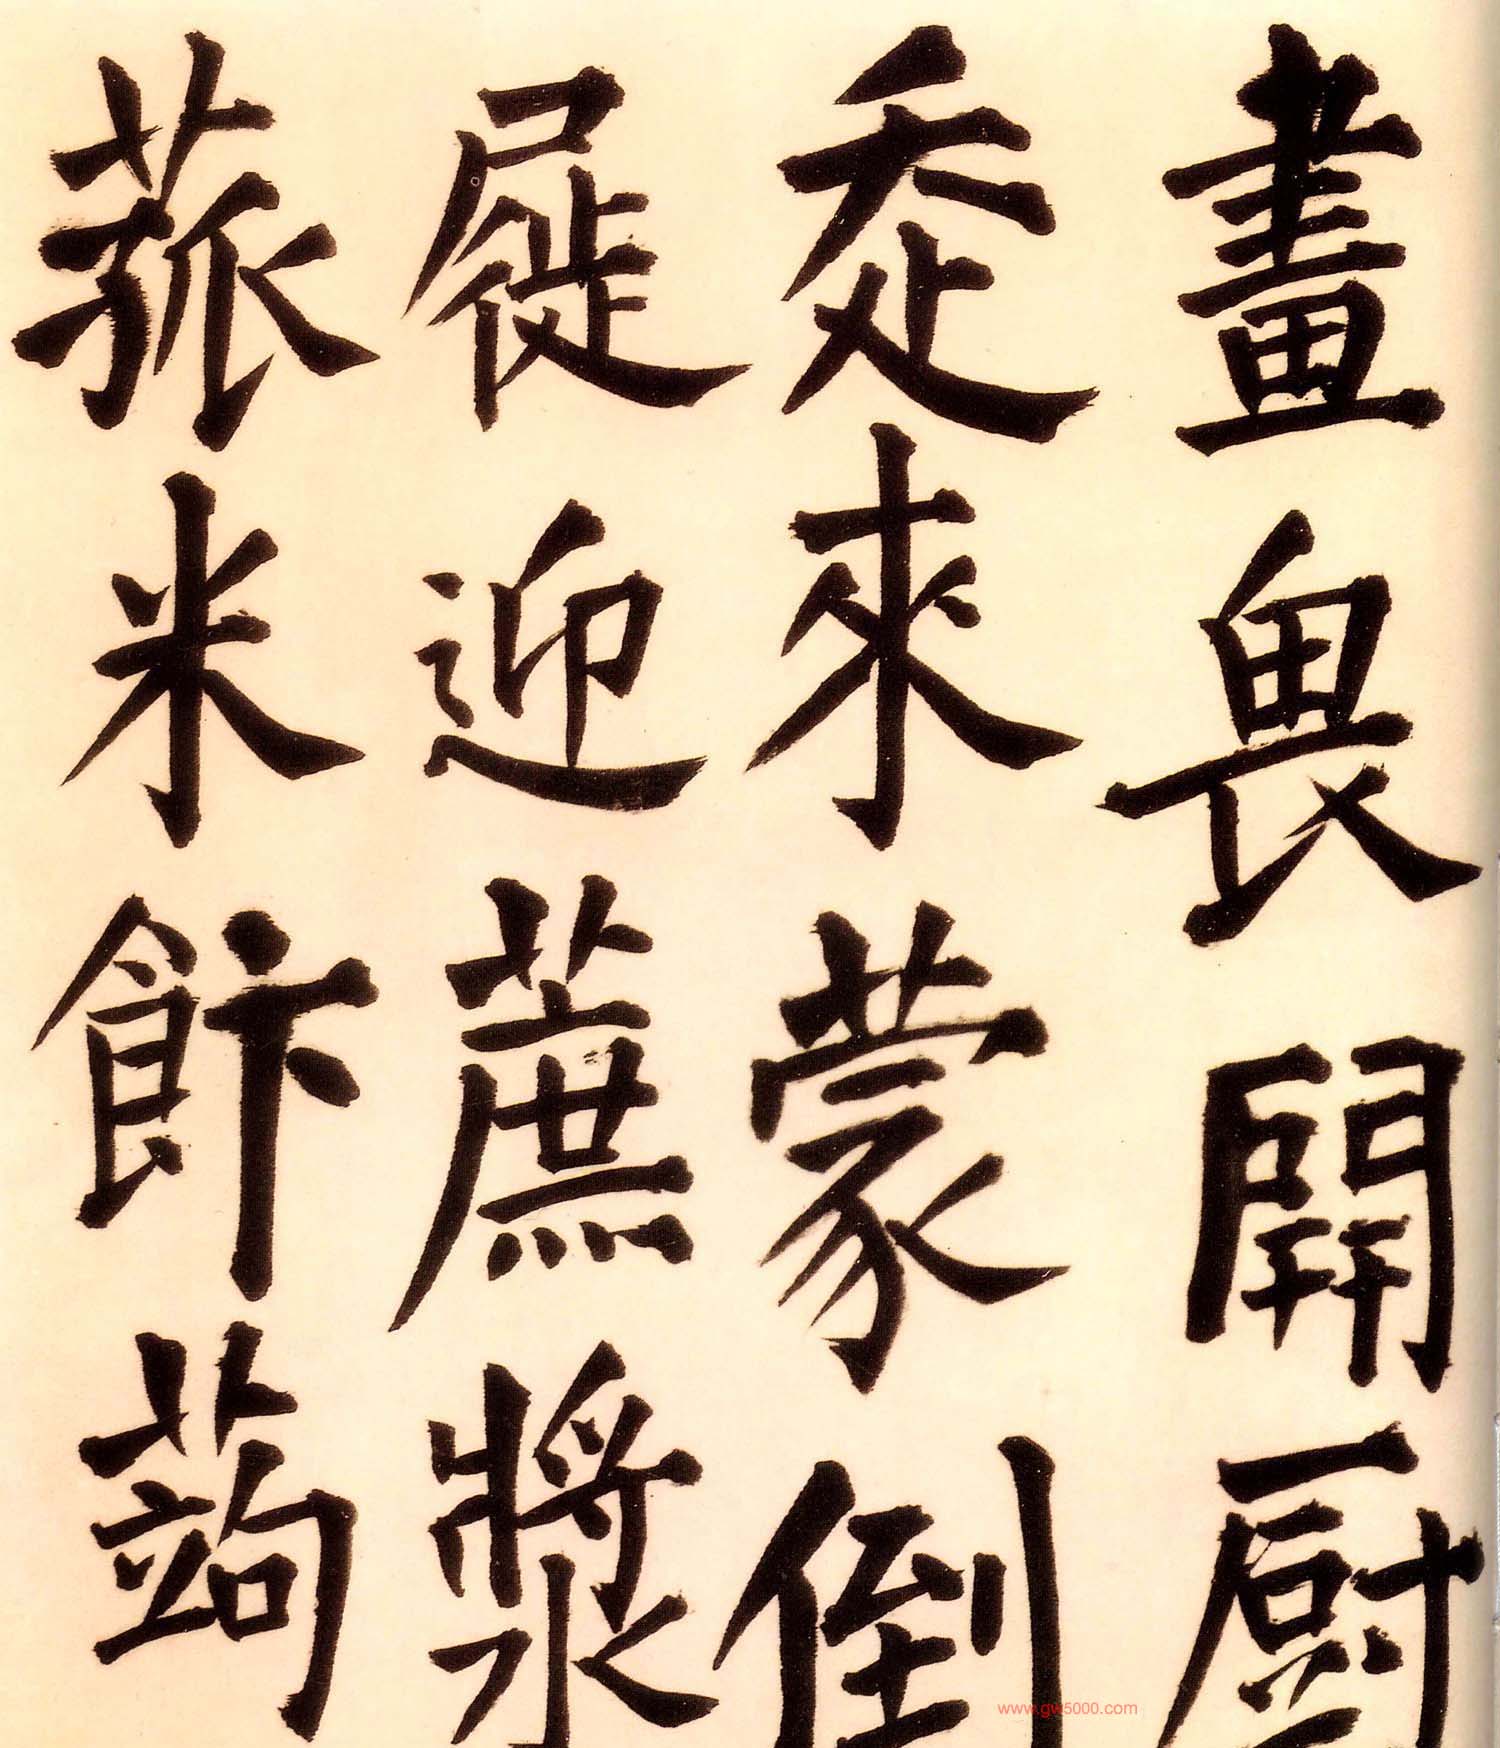 畫畏開厨
來蒙倒
屣迎蔗漿
菰米飰蒟
www.gw5000.com